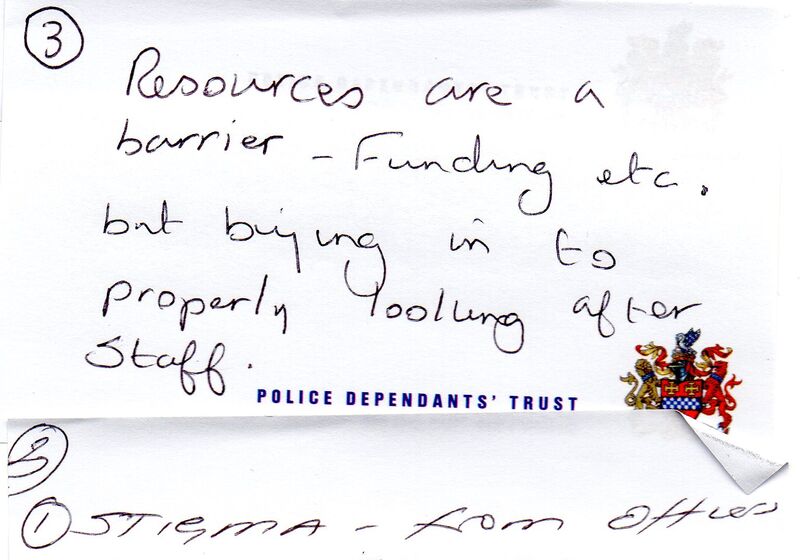 3
Resources are a
barrier - Funding etc.
but buying in to
properly looking after
staff.
POLICE DEPENDANTS' TRUST
3
① STIGMA - from